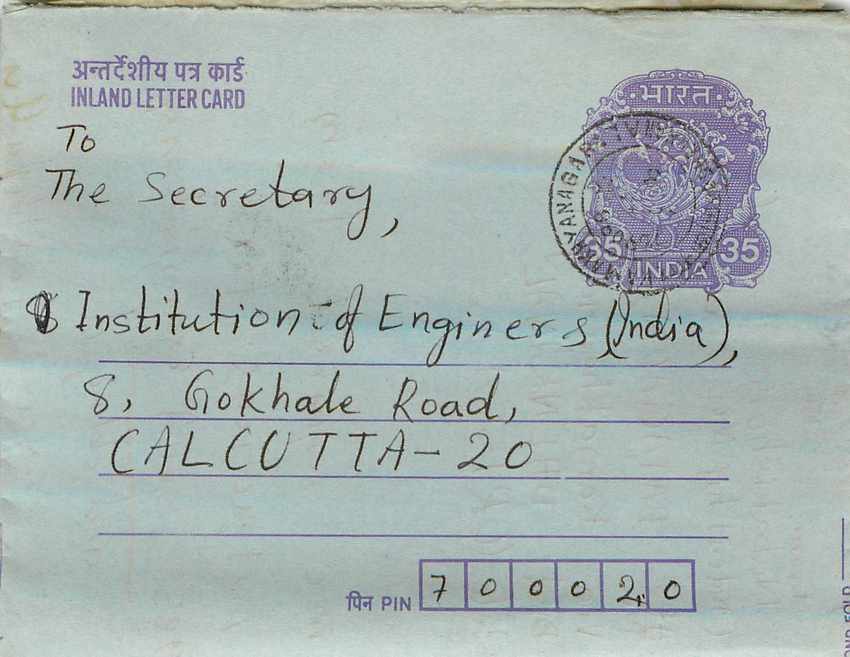 अन्तर्देशीय पत्र कार्ड
INLAND LETTER CARD
भारत
35 INDIA 35
To
The Secretary,
Institution of Enginers (India),
8, Gokhale Road,
CALCUTTA-20
पिन PIN 700020